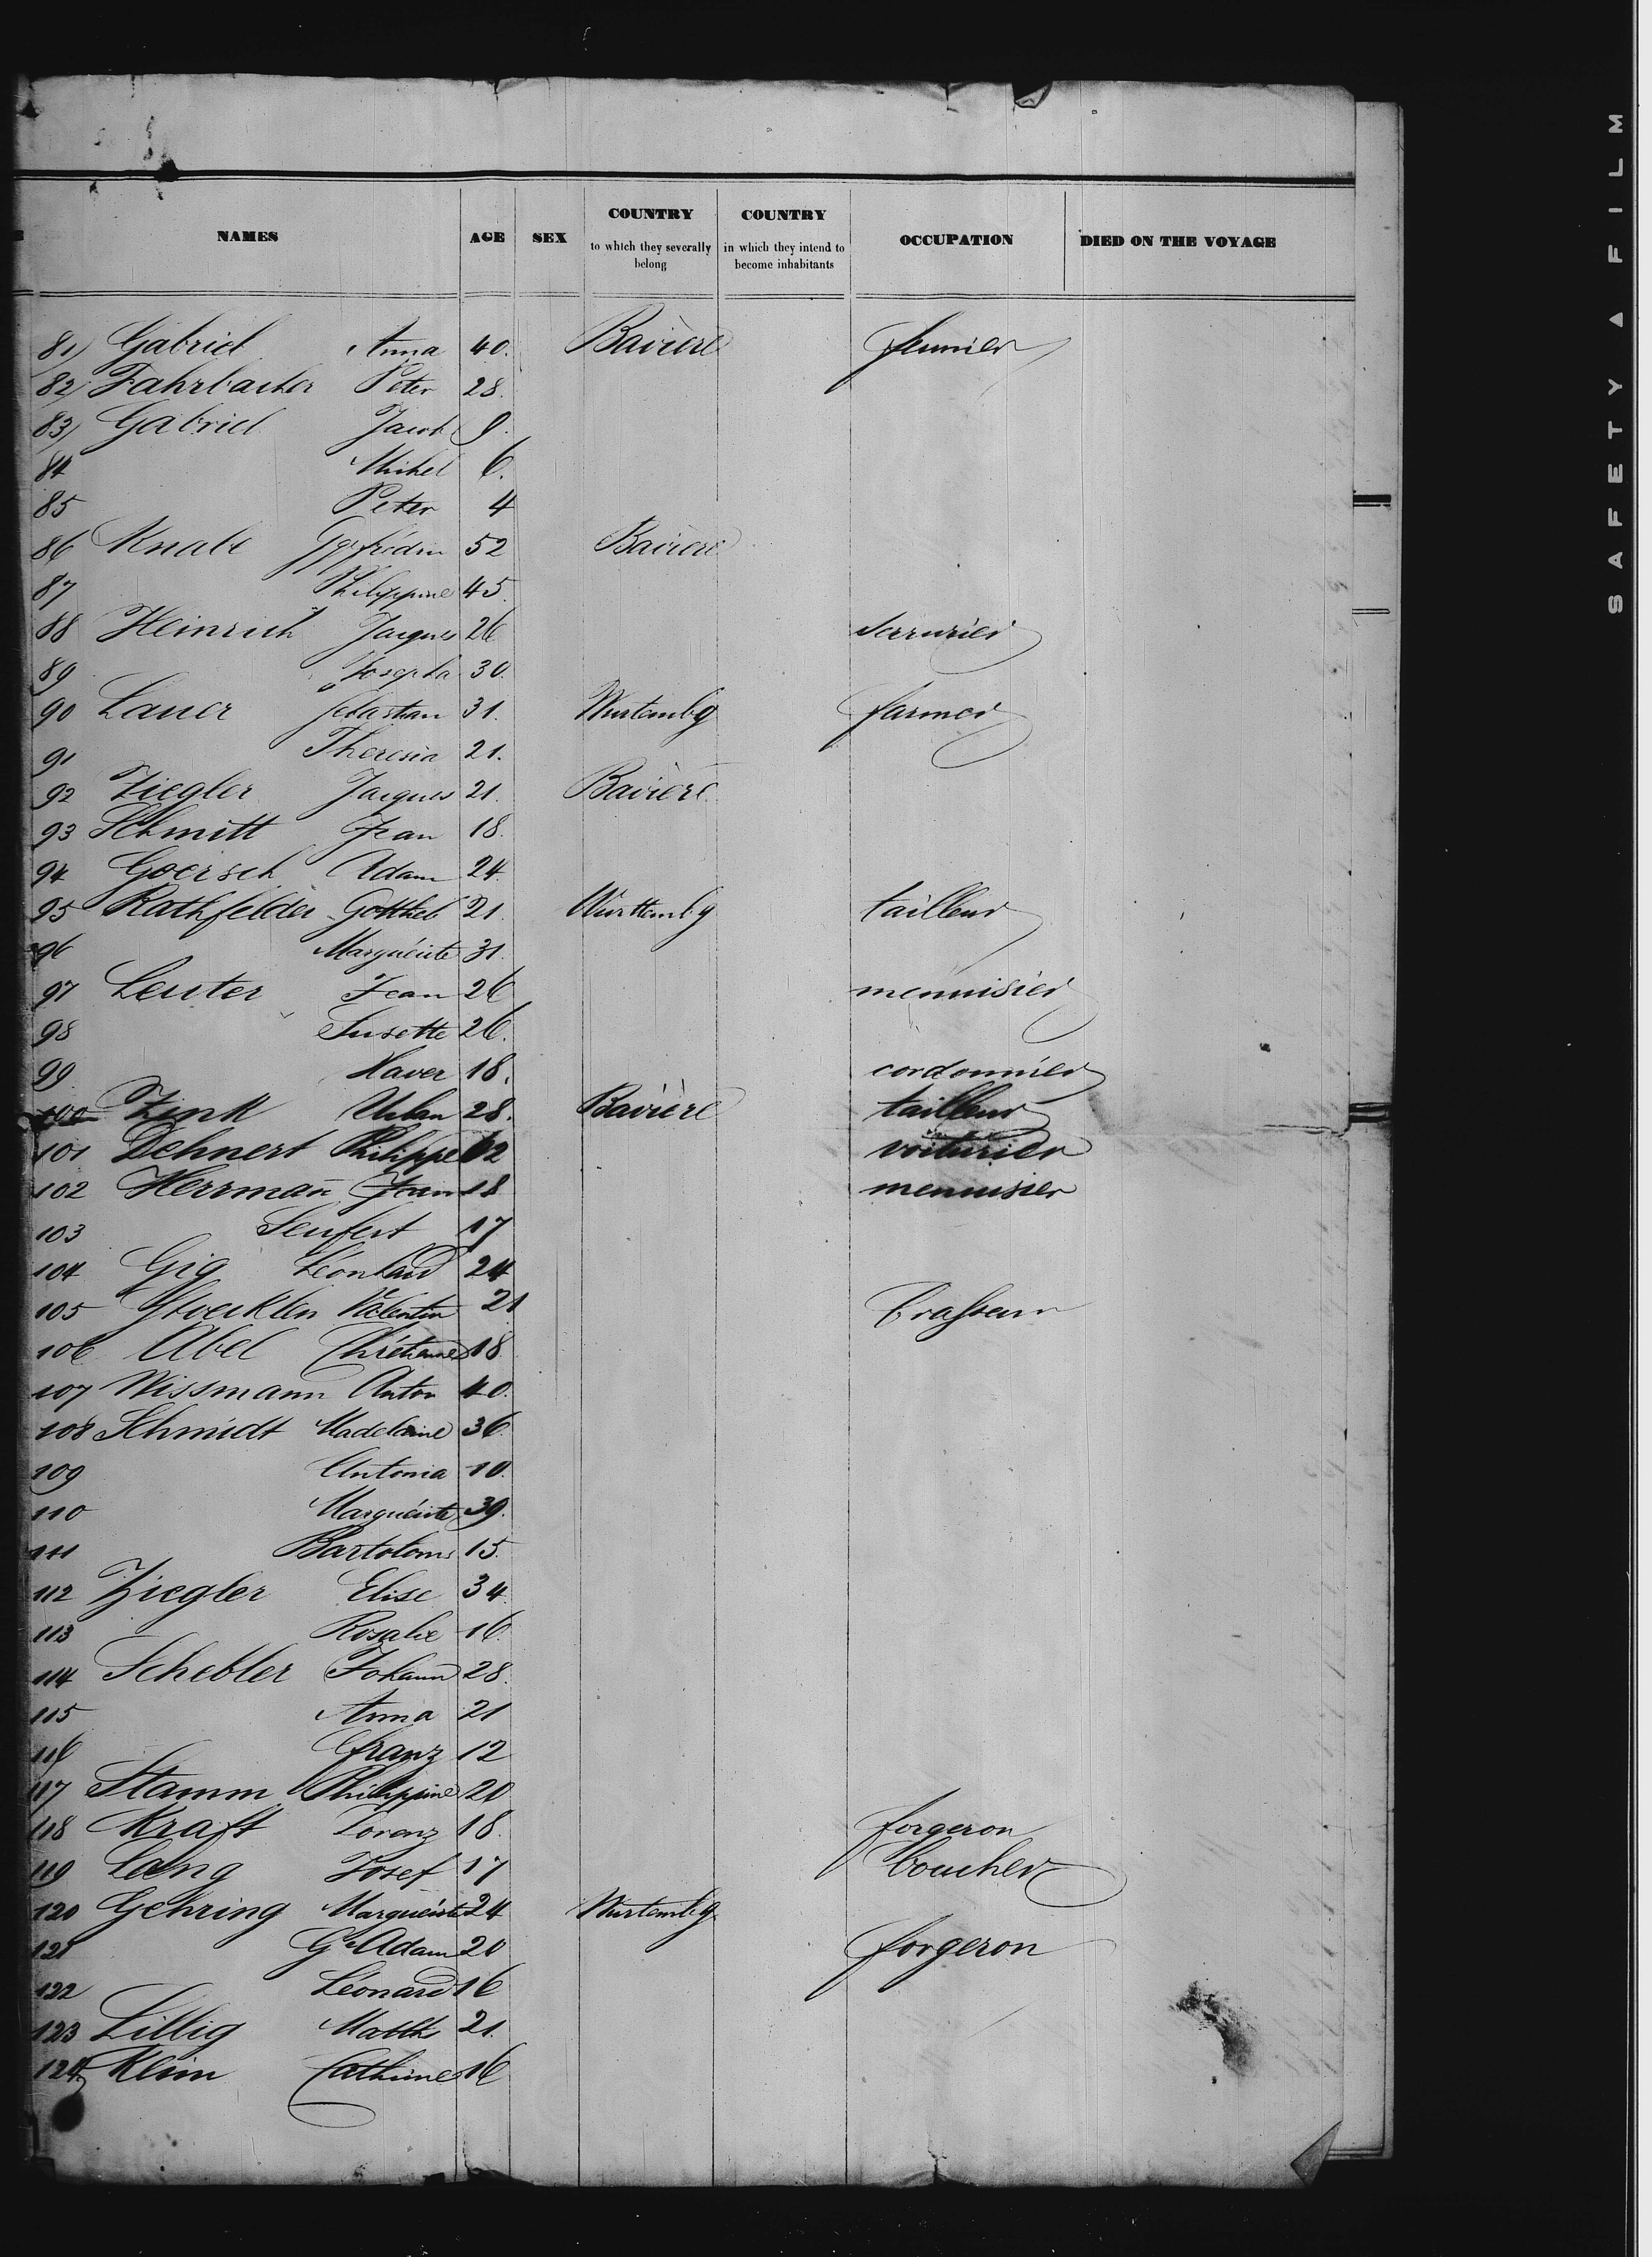 NAMES AGE SEX COUNTRY to which they severally belong COUNTRY in which they intend to become inhabitants OCCUPATION DIED ON THE VOYAGE
81) Gabriel Anna 40. Bavière
82) Fahrbacher Peter 28.
83) Gabriel Jacob 9.
84 Michel 6.
85 Peter 4
86 Knabe 52 Bavière
87 Philippine 45.
88 Heinrich Jacques 26 serrurier
89 Josepha 30.
90 Lauer Sebastian 31. Wurtembg farmer
91 Theresia 21.
92 Ziegler Jacques 21. Bavière
93 Schmitt Jean 18.
94 Goersch Adam 24.
95 Rathfelder Gottlieb 21. Württembg tailleur
96 Marguérite 31.
97 Leuter Jean 26 menuisier
98 Susette 26.
99 Xaver 18. cordonnier
100 Zink Urban 28. Bavière tailleur
101 Dehnert Philippe voiturier
102 Herrman̄ Jean 18 menuisier
103 Seufert 17
104 Gig Léonhard 24
105 Stoecklen Valentin 21 brasseur
106 Abel Chrétienne 18
107 Wissmann Anton 40.
108 Schmidt Madelaine 36
109 Antonia 10.
110 Marguérite 39.
111 Bartolom 15.
112 Ziegler Elise 34.
113 Rosalie 16.
114 Schebler Johann 28.
115 Anna 21
116 Franz 12
117 Stamm Philippine 20
118 Kraft Lorenz 18. forgeron
119 Lang Josef 17 boucher
120 Gehring Marguérite 24 Wurtembg
121 Ge Adam 20 forgeron
122 Léonard 16
123 Lillig Matths 21.
124 Klein Cathrine 16
SAFETY ▲ FILM